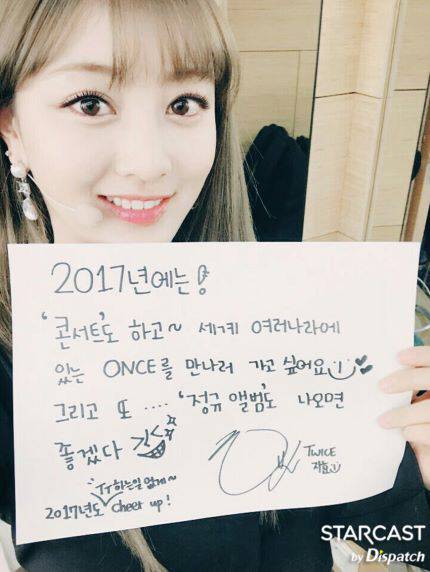 2017년에는!
'콘서트'도 하고~ 세계 여러나라에
있는 ONCE를 만나러 가고 싶어요
그리고 또 .... '정규 앨범'도 나오면
좋겠다
TWICE
지효
TT하는일 없게~
2017년도 Cheer up!
STARCAST
by Dispatch